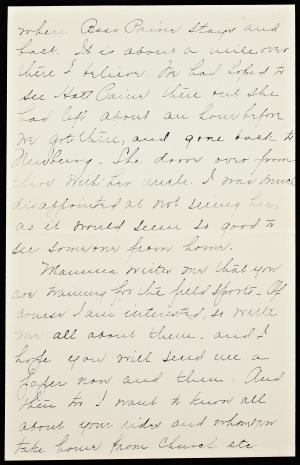 where Bess Paine stays and
back. It is about a mile over
there I believe. We had hoped to
see Hatt Paine there but she
had left about an hour before
we got there, and gone back to
Newburg. She drove over from
there with her uncle. I was much
disappointed at not seeing her,
as it would seem so good to
see someone from home.
Mamma writes me that you
are training for the field sports. Of
course I am interested, so write
me all about them. and I
hope you will send me a
paper now and then. And
then too I want to know all
about your rides and whom you
take home from Church etc.